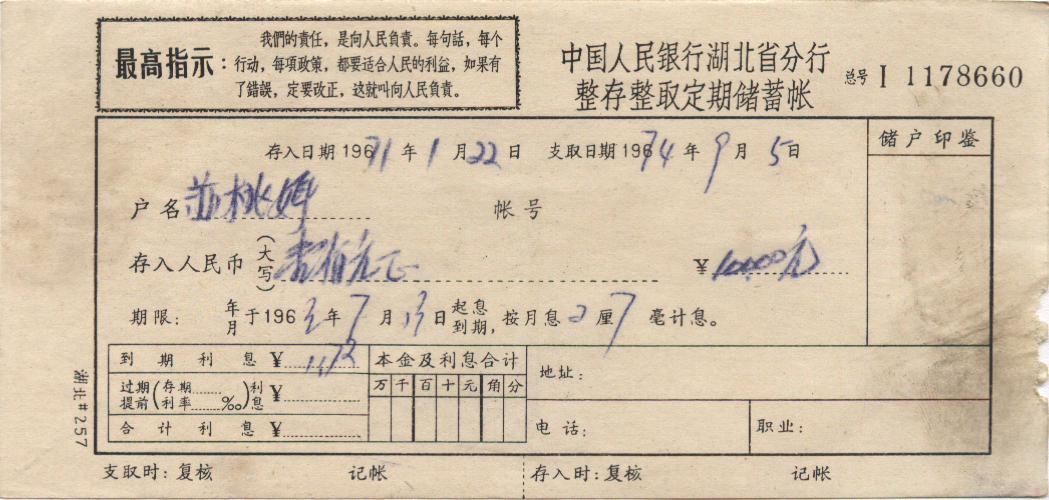 最高指示：
我們的責任，是向人民負責。每句話，每个
行动，每項政策，都要适合人民的利益，如果有
了錯誤，定要改正，这就叫向人民負責。
中国人民银行湖北省分行
整存整取定期储蓄帐
总号 I 1178660
存入日期196 71年1月22日 支取日期196 74年9月5日
储户印鉴
户名 苏桃婷
帐号
存入人民币（大写） 元正
¥ 100.00元
期限： 年月 于196 年7月13日 起息到期，按月息2厘7毫计息。
到期利息 ¥
过期提前（存期 利率 ‰）利息 ¥
合计利息 ¥
本金及利息合计
万 千 百 十 元 角 分
地址：
电话：
职业：
湖北#257
支取时：复核 记帐 存入时：复核 记帐